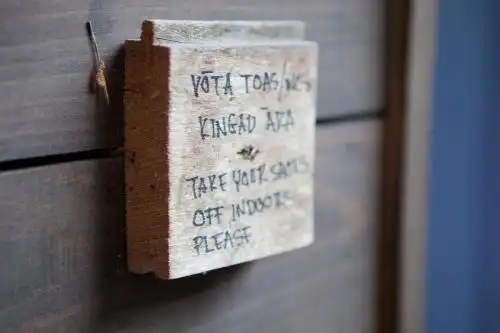 VÕTA TOAS/
KINGAD ÄRA
TAKE YOUR
OFF INDOORS
PLEASE